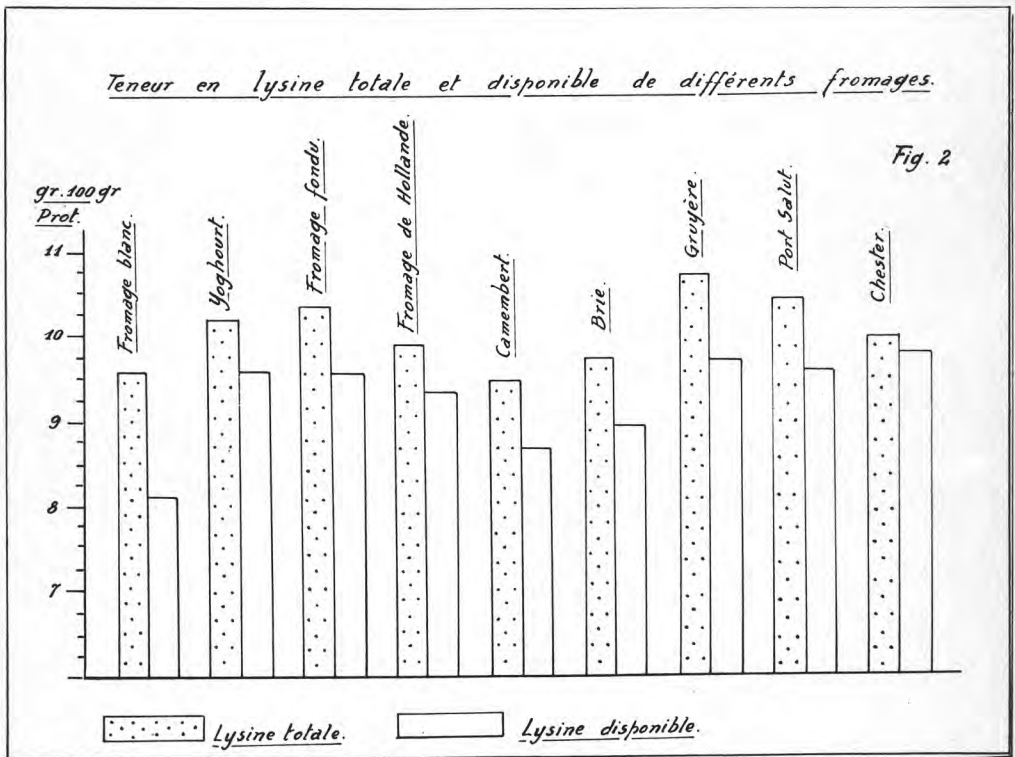 Teneur en lysine totale et disponible de différents fromages.
Fig. 2
gr. 100 gr
Prot.
Fromage blanc.
Yoghourt.
Fromage fondu.
Fromage de Hollande.
Camembert.
Brie.
Gruyère.
Port Salut.
Chester.
11
10
9
8
7
Lysine totale.
Lysine disponible.